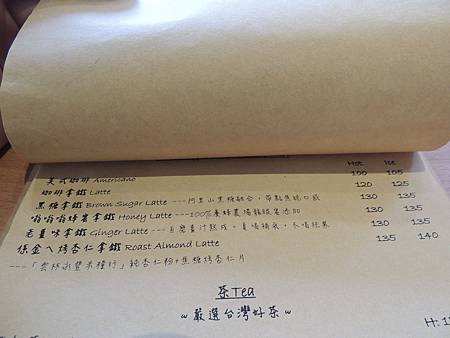 Hot Ice
美式咖啡 Americano 100 105
咖啡拿鐵 Latte 120 125
黑糖拿鐵 Brown Sugar Latte ---阿里山黑糖融合，帶點焦糖口感 130 135
嗡嗡嗡蜂蜜拿鐵 Honey Latte ---100%養蜂農場 130 135
老薑味拿鐵 Ginger Latte --- 130 135
保金ㄟ烤杏仁拿鐵 Roast Almond Latte 135 140
---「雲林永豐米糧行」純杏仁粉+焦糖烤杏仁片
茶Tea
~嚴選台灣好茶~
H: